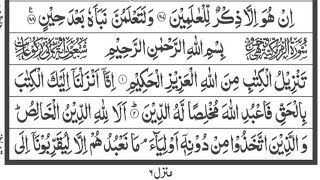 اِنْ هُوَ اِلَّا ذِكْرٌ لِّلْعٰلَمِيْنَ ۝۸۷ وَلَتَعْلَمُنَّ نَبَاَهٗ بَعْدَ حِيْنٍ ۝۸۸
بِسْمِ اللّٰهِ الرَّحْمٰنِ الرَّحِيْمِ
تَنْزِيْلُ الْكِتٰبِ مِنَ اللّٰهِ الْعَزِيْزِ الْحَكِيْمِ ۝۱ اِنَّاۤ اَنْزَلْنَاۤ اِلَيْكَ الْكِتٰبَ
بِالْحَقِّ فَاعْبُدِ اللّٰهَ مُخْلِصًا لَّهُ الدِّيْنَ ۝۲ اَلَا لِلّٰهِ الدِّيْنُ الْخَالِصُ ؕ
وَالَّذِيْنَ اتَّخَذُوْا مِنْ دُوْنِهٖۤ اَوْلِيَآءَ ۘ مَا نَعْبُدُهُمْ اِلَّا لِيُقَرِّبُوْنَاۤ اِلَى
منزل ۶